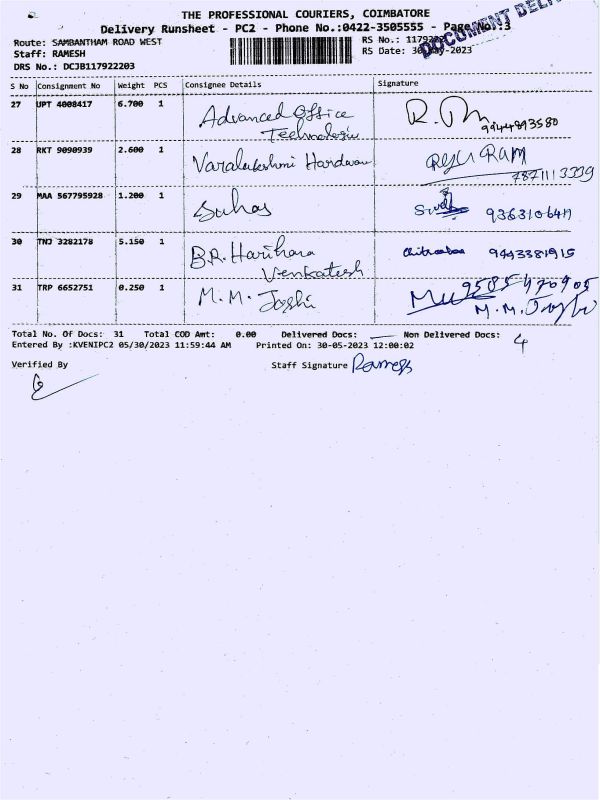 THE PROFESSIONAL COURIERS, COIMBATORE
Delivery Runsheet - PC2 - Phone No.:0422-3505555 - Page No.:3
DOCUMENT
Route: SAMBANTHAM ROAD WEST
RS No.: 1179222
Staff: RAMESH
RS Date: 30-May-2023
DRS No.: DCJB117922203
S No Consignment No Weight PCS Consignee Details Signature
27 UPT 4008417 6.700 1 Advanced Office
Technologies
9944893580
28 RKT 9090939 2.600 1 Varalakshmi Hardware
RAM
7871113339
29 MAA 567795928 1.200 1 Suhas
30 TNJ 3282178 5.150 1 B.R. Harihara
Venkatesh
9443381915
31 TRP 6652751 0.250 1 M.M. Joshi
9585470905
M.M. Joshi
Total No. Of Docs: 31 Total COD Amt: 0.00 Delivered Docs: Non Delivered Docs: 4
Entered By :KVENIPC2 05/30/2023 11:59:44 AM Printed On: 30-05-2023 12:00:02
Verified By
Staff Signature Ramesh